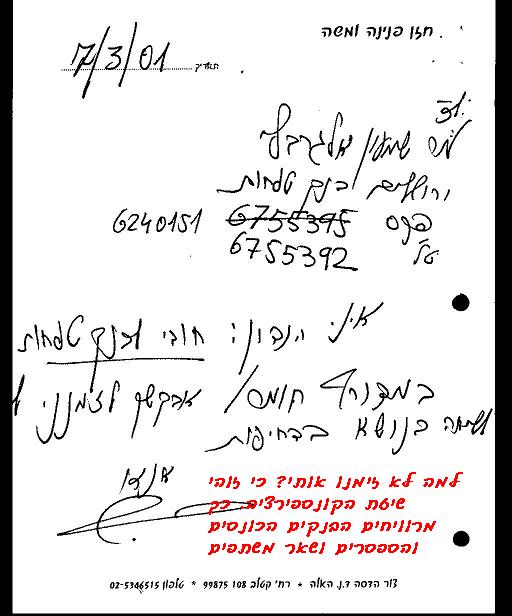 חזן פנינה ומשה
תאריך 7/3/01
מר שמעון אלגרבלי
ירושלים בנק טפחות
פקס 6755395 6240151
טל 6755392
א.נ. הנדון: חובי לבנק טפחות
במצורף חומר/ אבקשך לזמנני
בנושא בדחיפות
למה לא זימנו אותי? כי זוהי
שיטת הקונספירצים כך
מרוויחים הבנקים הכונסים
והספסרים ושאר משתפים
צור הדסה ד.נ. האלה * רח' קטלב 108 99875 * טלפון 02-5346515